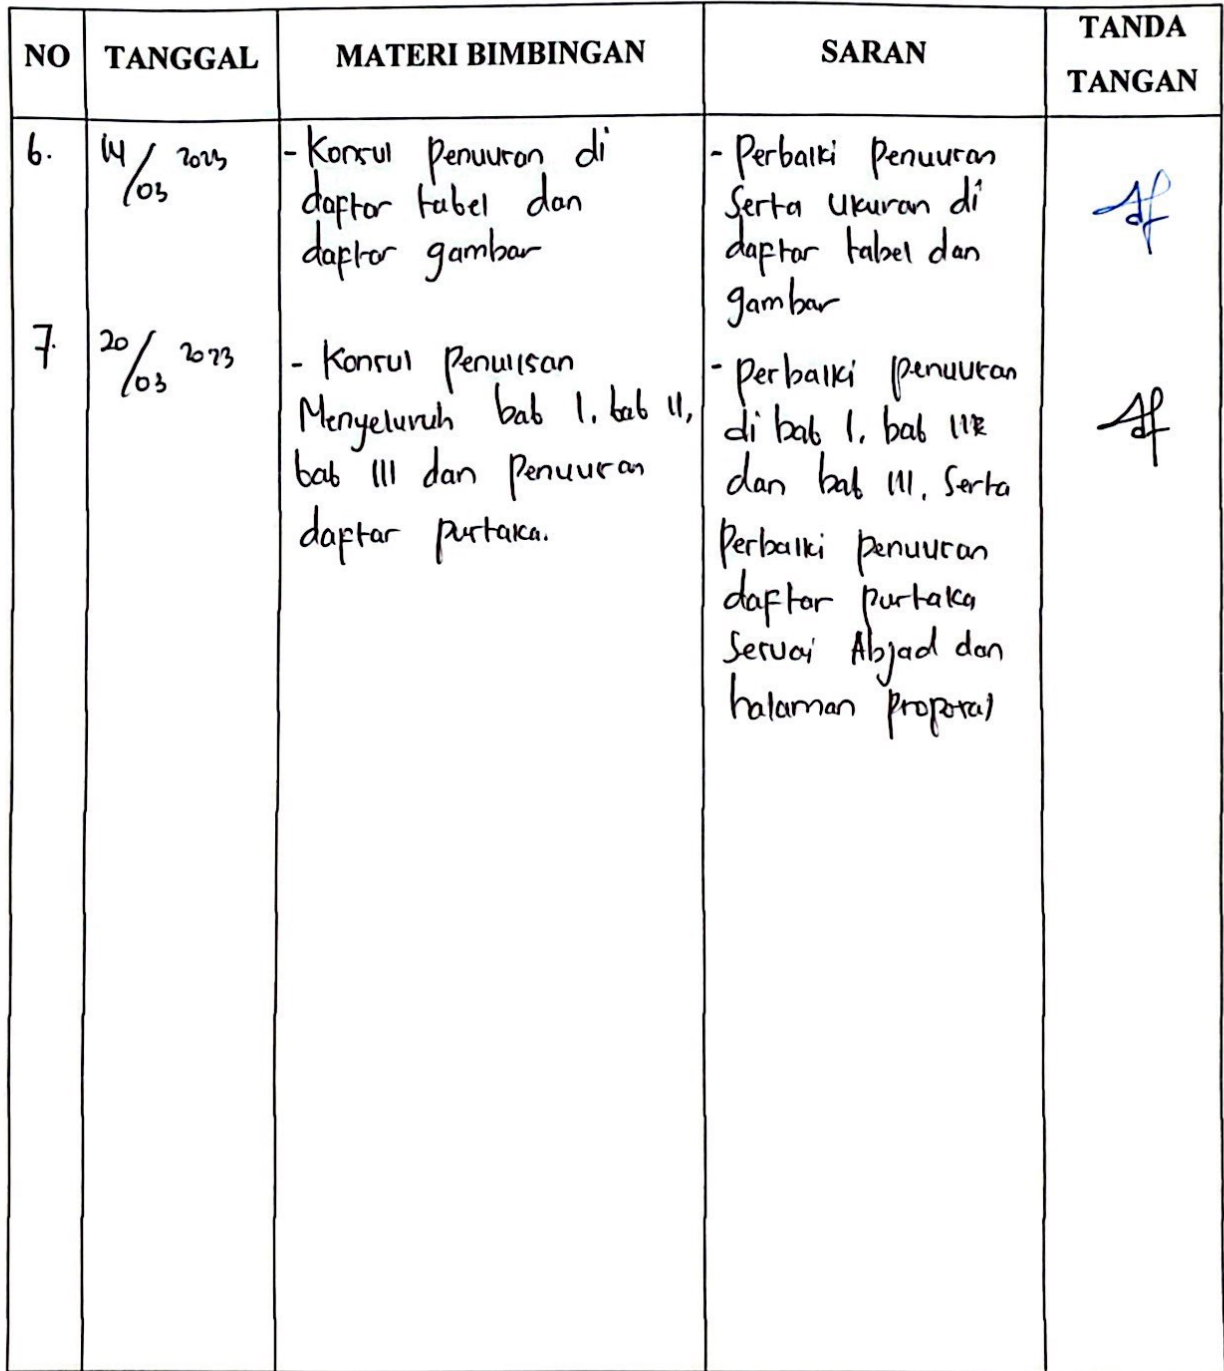 NO TANGGAL MATERI BIMBINGAN SARAN TANDA TANGAN
6. 14/03 2023
- Konsul Penulisan di
daftar tabel dan
daftar gambar
- Perbaiki Penulisan
Serta Ukuran di
daftar tabel dan
gambar
7. 20/03 2023
- Konsul Penulisan
Menyeluruh bab I, bab II,
bab III dan Penulisan
daftar pustaka.
- Perbaiki penulisan
di bab I, bab II
dan bab III, Serta
Perbaiki penulisan
daftar pustaka
Sesuai Abjad dan
halaman proposal